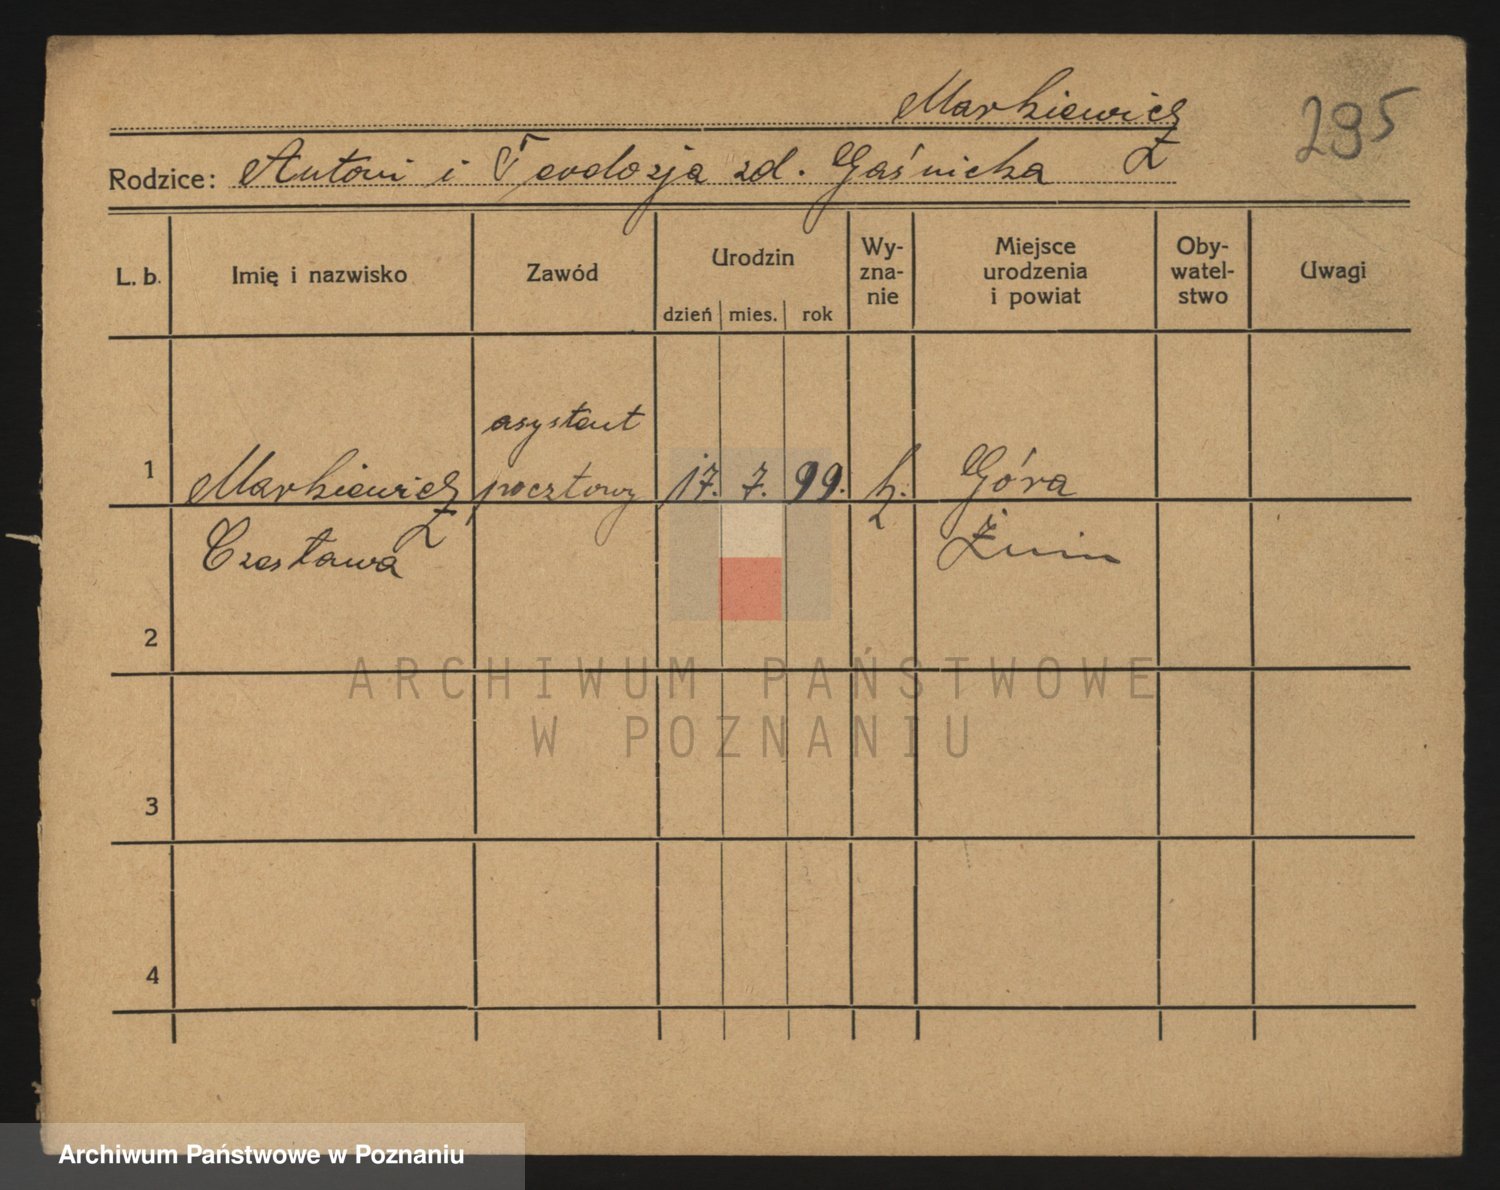 Markiewicz
295
Rodzice: Antoni i Teodozja zd. Gaśnicka
L. b. Imię i nazwisko Zawód Urodzin Wy-zna-nie Miejsce urodzenia i powiat Oby-watel-stwo Uwagi
dzień mies. rok
asystent
1 Markiewicz pocztowy 17. 7. 99. k. Góra
Czesława Żnin
2
ARCHIWUM PAŃSTWOWE
W POZNANIU
3
4
Archiwum Państwowe w Poznaniu